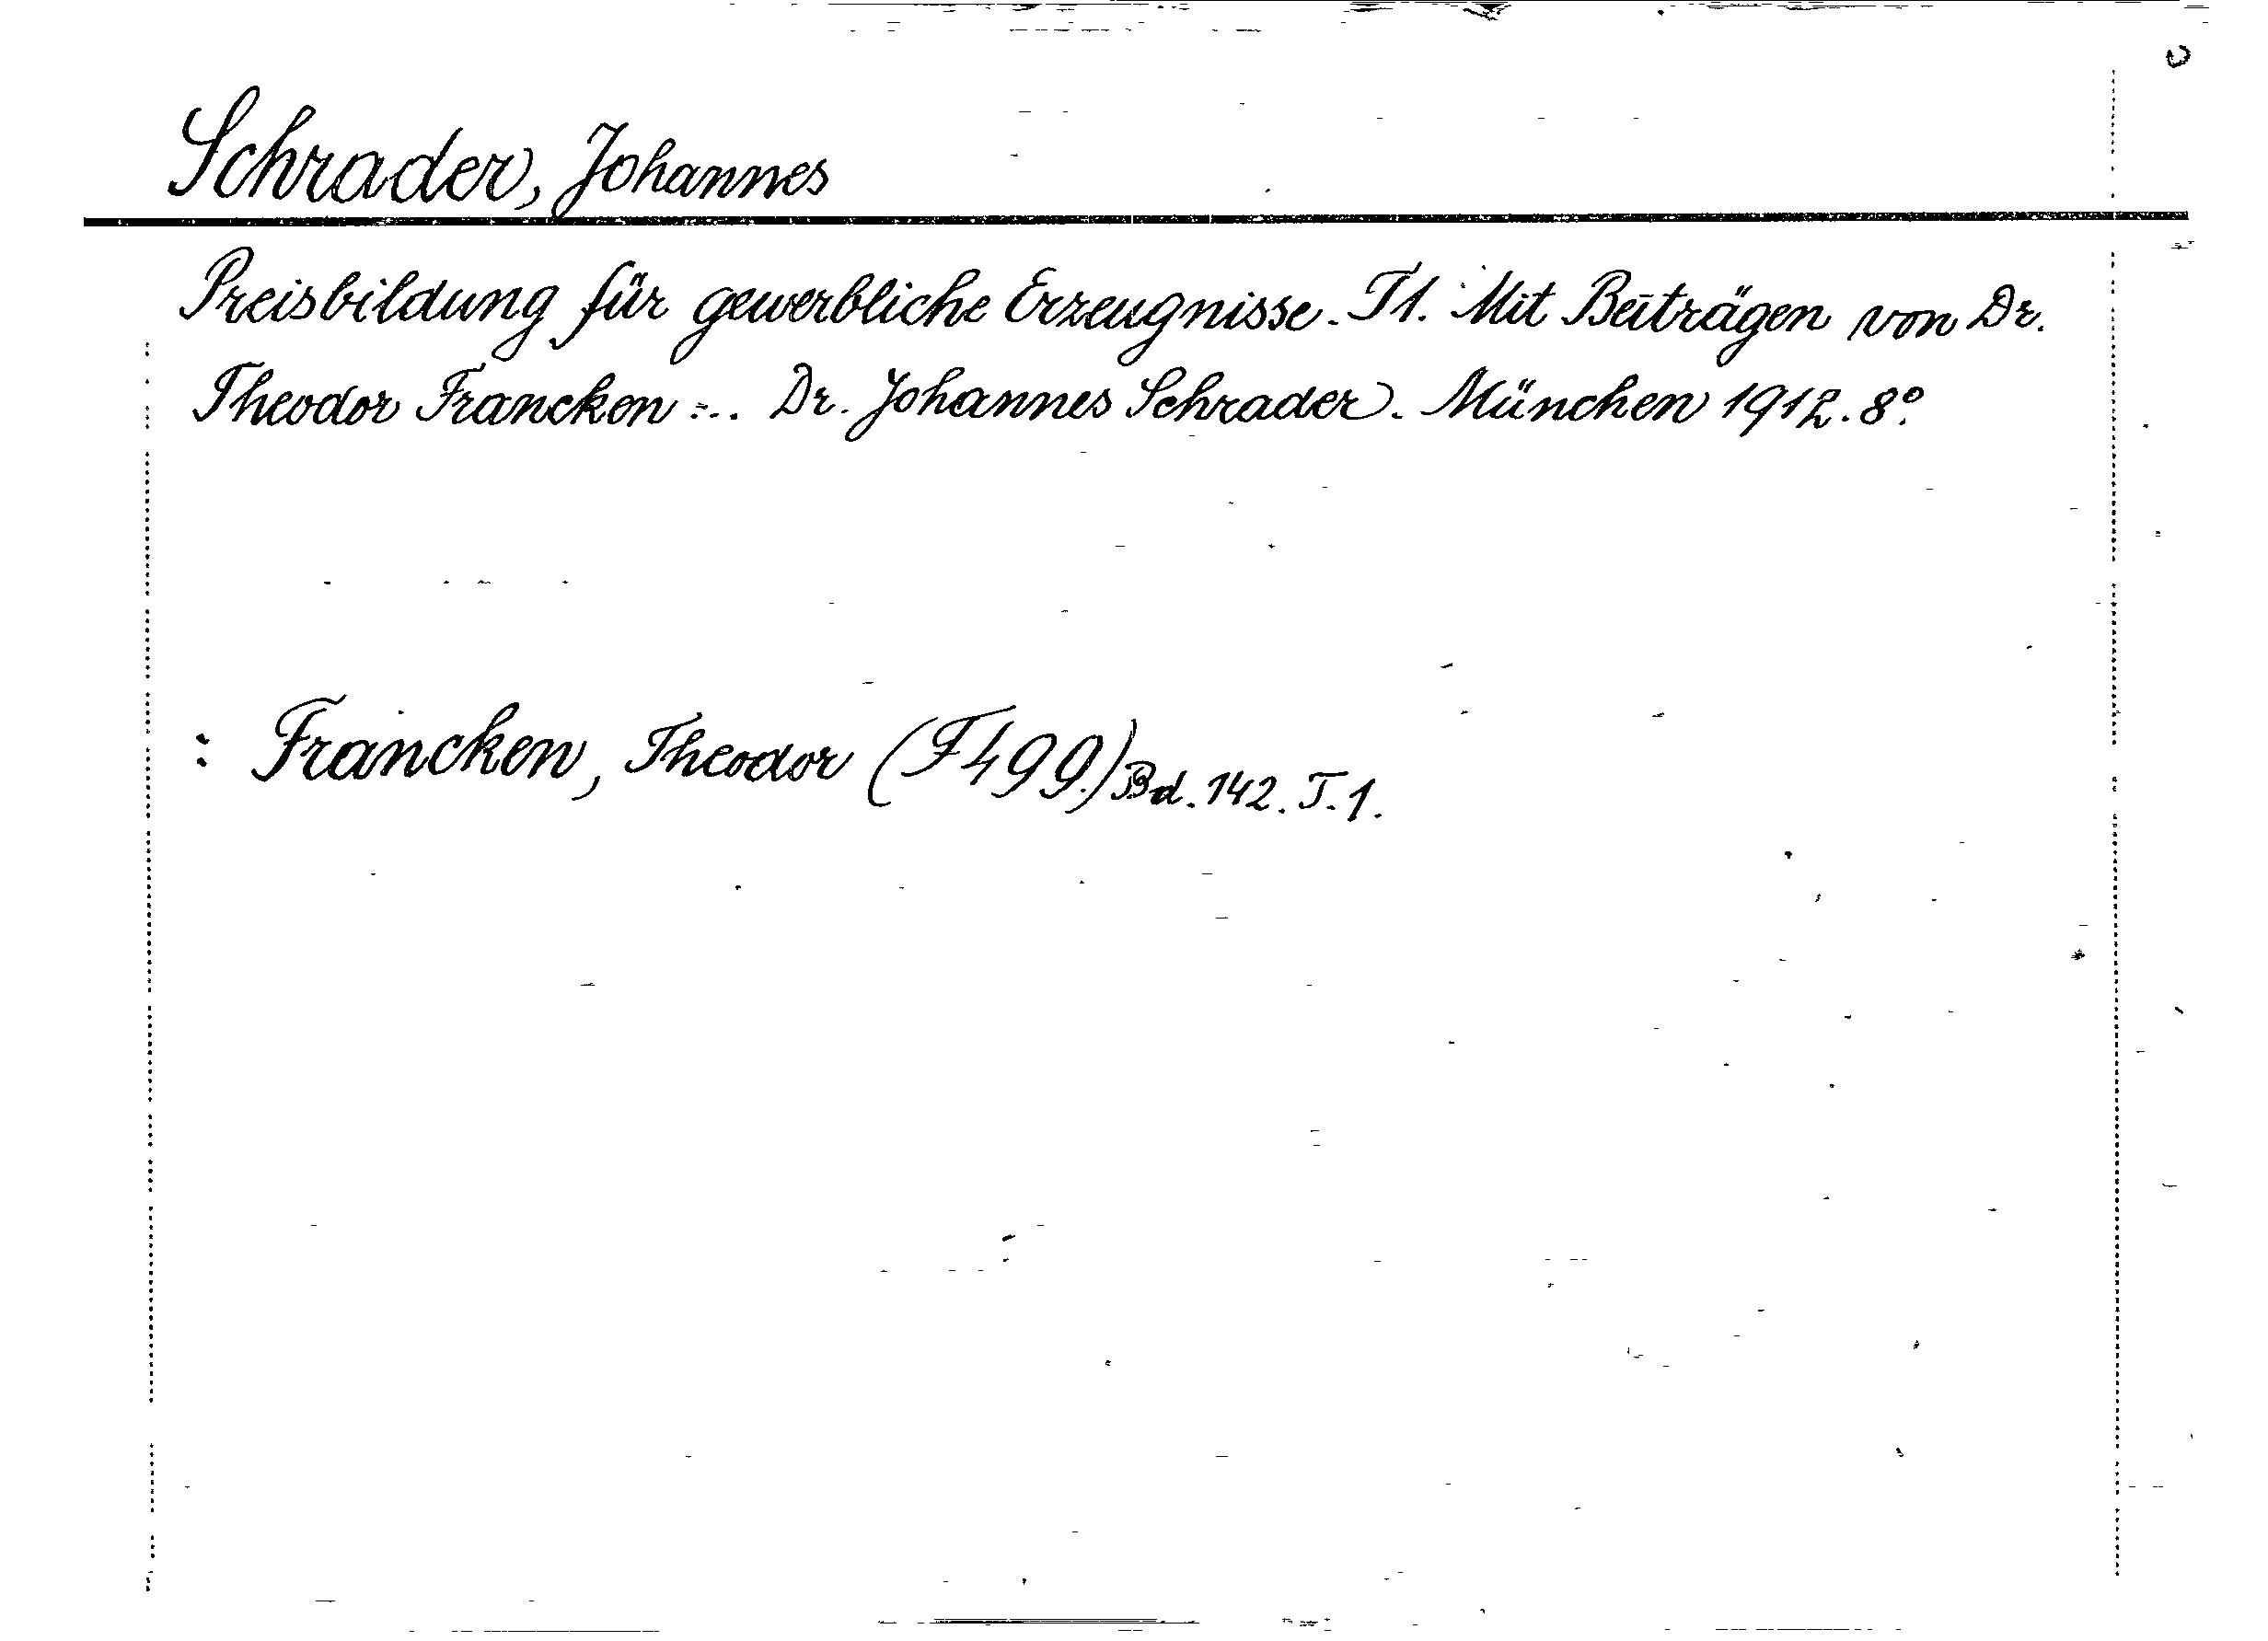 Schrader, Johannes
Preisbildung für gewerbliche Erzeugnisse. T1. Mit Beiträgen von Dr.
Theodor Francken ... Dr. Johannes Schrader. München 1912. 8°.
: Francken, Theodor (F499.) Bd. 142. T. 1.